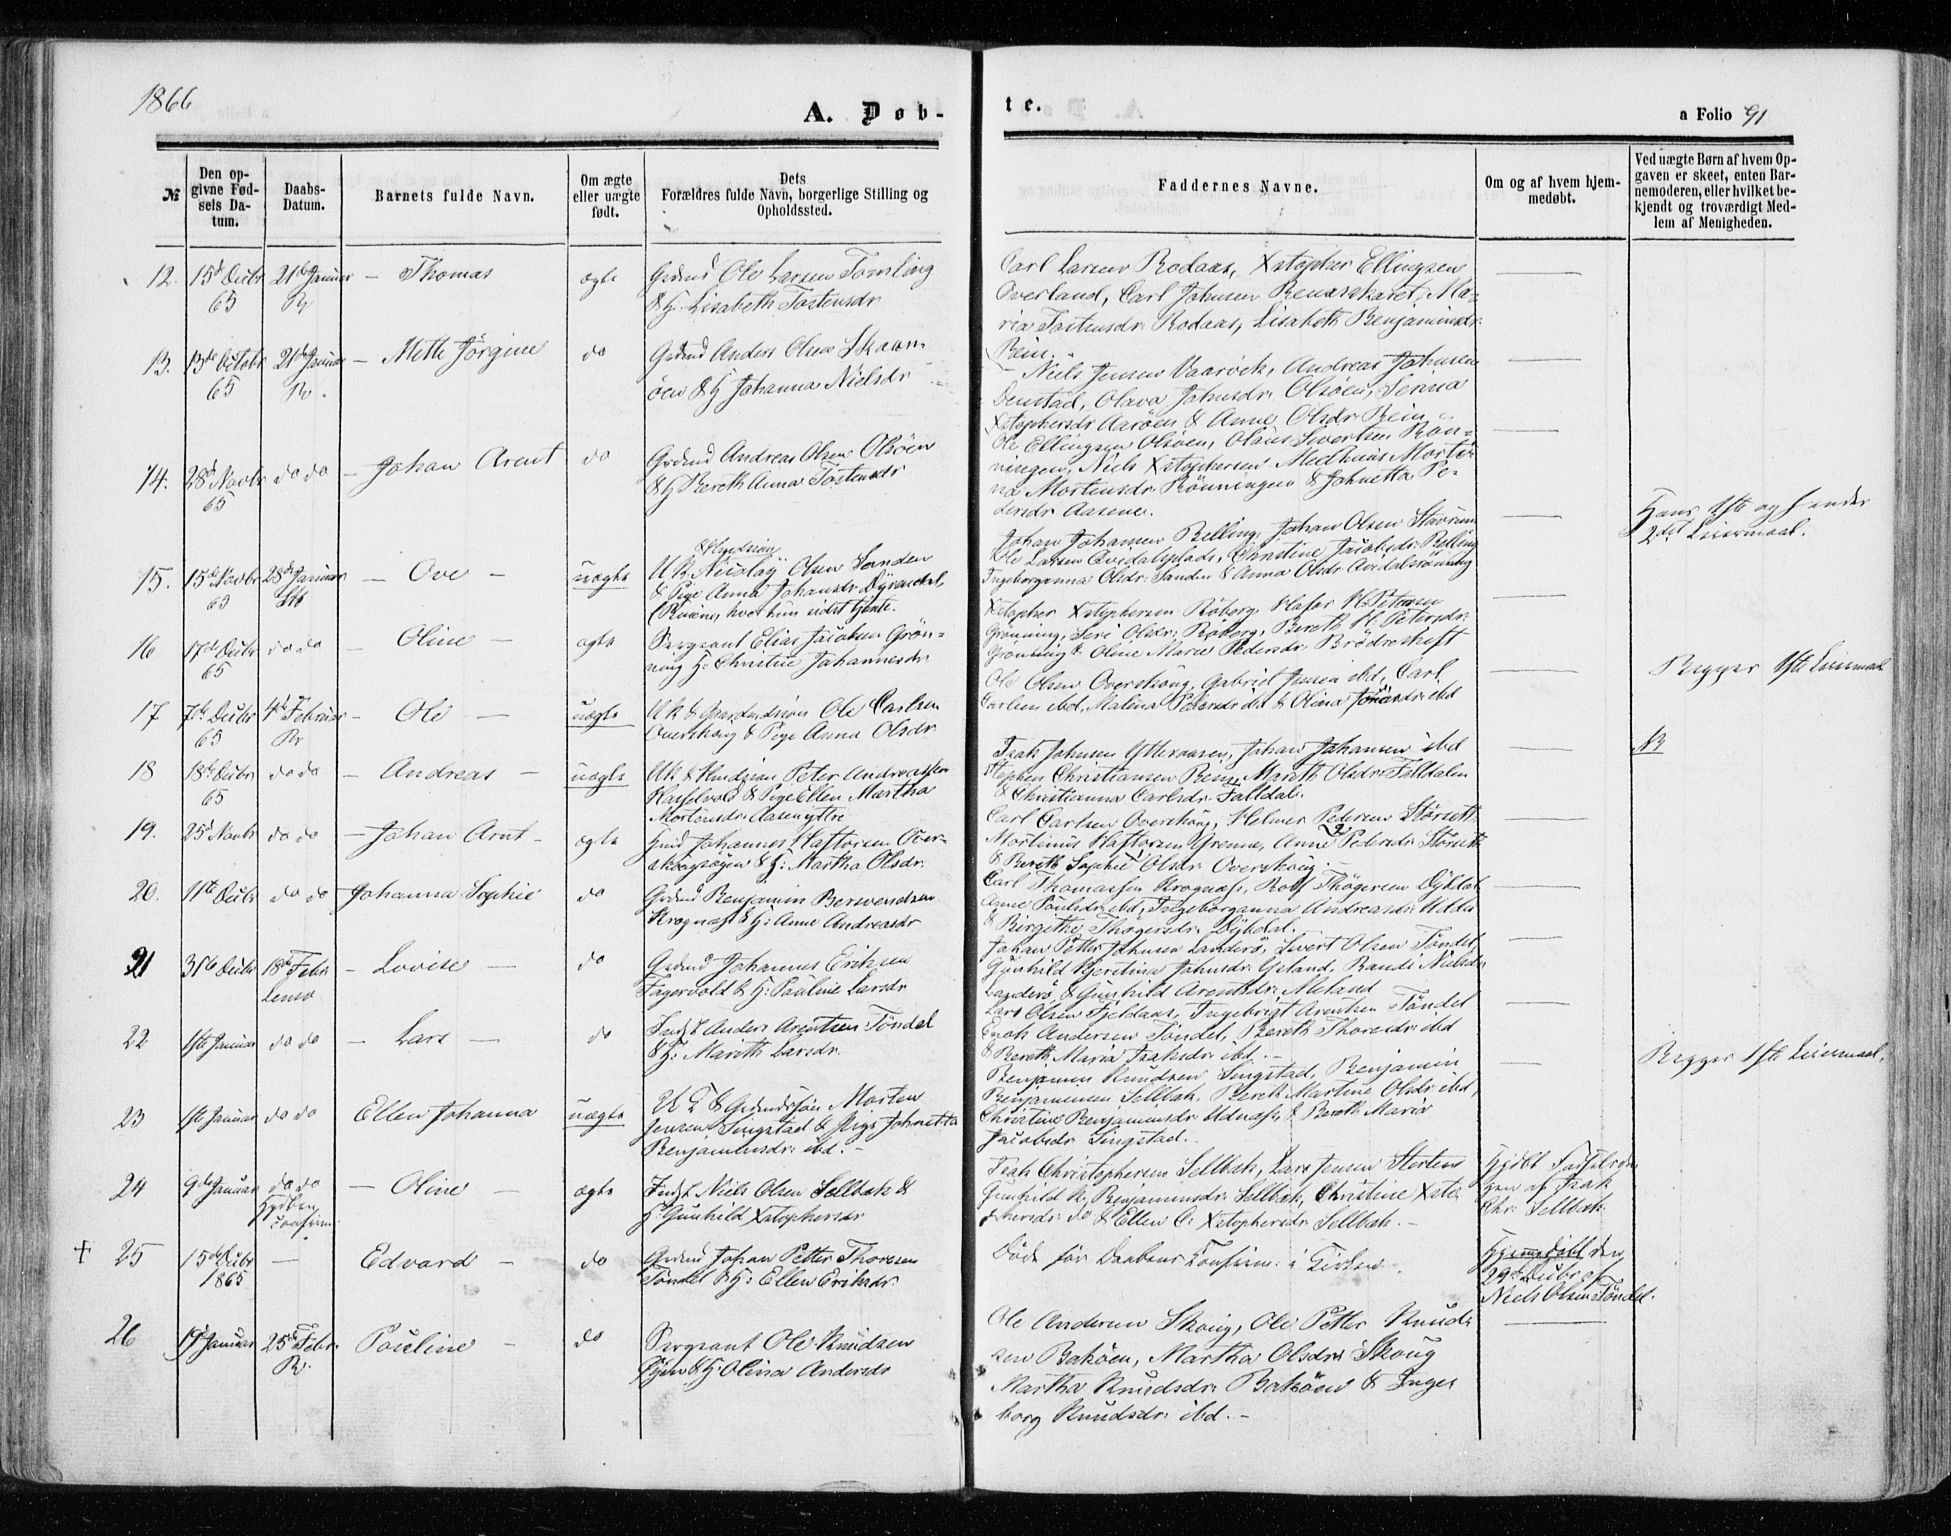 1866
A. Døb-
te.
a Folio 91
№
Den op-
givne Fød-
sels Da-
tum.
Daabs-
Datum.
Barnets fulde Navn.
Om ægte
eller uægte
født.
Dets
Forældres fulde Navn, borgerlige Stilling og
Opholdssted.
Faddernes Navne.
Om og af hvem hjem-
medøbt.
Ved uægte Børn af hvem Op-
gaven er skeet, enten Bar-
nemoderen, eller hvilket be-
kjendt og troværdigt Med-
lem af Menigheden.
12.
15de Decbr
65
21de Januar
R
Thomas
ægte
Grdmd Ole Larsen Tomling
& H. Lisabeth Tostensdr
Carl Larsen Rodaas, Xstopher Ellingsen
Overland, Carl Johnsen Renaaskaret, Ma-
ria Tostensdr Rodaas, Lisabeth Benjaminsdr
Rein.
13.
13de Octobr
65
21de Januar
R.
Mette Jørgine
do
Grdmd Anders Olsen
øen & H Johanna Nielsdr
Niels Jensen Vaarvik, Andreas Johnsen
Denstad, Olava Johnsdr Olsøen, Serina
Xstophersdr Aarøen & Anne Olsdr Rein
14.
28de Novbr
65
do do
Johan Arent
do
Grdmd Andreas Olsen Olsøen
& H Bereth Anna Tostensdr
Ole Ellingsen Olsøen, Olaus Sivertsen Røn-
ningen, Niels Xstophersen Medhuus Morti-
na Mortensdr Rönningen & Johnetta Pe-
dersdr Aasene.
15.
15de Novbr
65
28de Januar
Ove
uægte
Nicolay Olsen Sanden
& Pige Anna Johansdr
hvor hun sidst tjente.
Johan Johansen Belling, Johan Olsen
Ole Larsen Christine Jacobsdr Belling
Ingeborganna Olsdr Sanden & Anna Olsdr
Hans 1ste og hendes
2det Leiermaal.
16
17de Decbr
65
do do
Oline
ægte
Sergeant Elias Jacobsen Grøn-
ning H: Christine Johannesdr
Xstopher Xstophersen Röberg,
Grønning, Olsdr Röberg, Bereth
Grønning & Oline Marie Pedersdr Brödreskift
17
7de Decbr
65
4de Februar
R
Ole
uægte
Ole Carlsen
Overskoug & Pige Anna Olsdr
Ole Olsen Overskoug, Gabriel Jensen ibd, Carl
Carlsen ibd, Malena Pedersdr ibd & Olina ibd
Begges 1ste Leiermaal
18
18de Decbr
65
do do
Andreas
uægte
Peter Andreassen
Hasselvold & Pige Ellen Martha
Mortensdr Aasen yttre
Isak Johnsen Ytteraasen, Johan Johansen ibd
Stephen Christiansen Rein, Mareth Olsdr Falldalen
& Christianna Carlsdr Falldal.
19.
25de Novbr
do do
Johan Arnt
ægte
Johannes Haftorsen Over-
& H: Martha Olsdr
Carl Carlsen Overskoug, Helmer Pedersen Störseth
Mortinus Haftorsen Grenne, Anne Pedersdr Störseth
& Bereth Sophie Olsdr Overskoug
20.
11te Decbr
do do
Johanna Sophie
do
Grdmd Benjamin
Krognæss & H: Anne Andreasdr
Carl Thomassen Krognæss, Rolf Thøgersen Dybdal
Anne Poulsdr ibd, Ingeborganna Andreasdr
& Birgithe Thøgersdr Dybdal.
21
31te Decbr
18de Febr
Lensv
Lovise
do
Grdmd Johannes Eriksen
Fagervold & H: Pauline Larsdr
Johan Petter Johnsen Landerö, Sivert Olsen Töndel,
Gunhild Kjerstina Johnsdr Randi Nielsdr
Landerö & Gunhild Arentsdr Meland
22
1ste Januar
do do
Lars
do
Indst Anders Arentsen Töndel
& H: Mareth Larsdr
Lars Olsen Fjeldaas, Ingebrigt Arentsen Töndel
Enok Andersen Töndel, Bereth Thoresdr ibd
& Bereth Maria Isaksdr ibd.
23
1ste Januar
do do
Ellen Johanna
uægte
U K & Grdmdssön Morten
Jensen Singstad & Pige Johnetta
Benjaminsdr ibd.
Benjamin Knudsen Singstad, Benjamin
Benjaminsen Sellbak, Bereth Martine Olsdr ibd,
Christine Benjaminsdr Udnæss & Bereth Maria
Jacobsdr Singstad.
Begges 1ste Leiermaal.
24
9de Januar
do do
Hjdøben
confirm:
Oline
ægte
Indst Niels Olsen Sellbak &
H: Gunhild Xstophersdr
Isak Christophersen Sellbak, Lars Jensen
Gunhild Benjaminsdr Sellbak, Christine Xsto-
phersdr do & Ellen C: Xstophersdr Sellbak.
Hjdöbt
af Isak
Chr: Sellbak
+ 25
15de Decbr
1865
Edvard
do
Grdmd Johan Petter Thoresen
Töndel & H: Ellen Eriksdr
Døde før Daabens Confirm: i Kirken.
Hjemdöbt den
29de Decbr af
Niels Olsen Töndel.
26
19de Januar
25de Febr.
R.
Pouline
do
Sergeant Ole Knudsen
Öyen & H: Olina Andersdr
Ole Andersen Skoug, Ole Petter Knud-
sen Baköen, Martha Olsdr Skoug
Martha Knudsdr Baköen & Inge-
borg Knudsdr ibd.